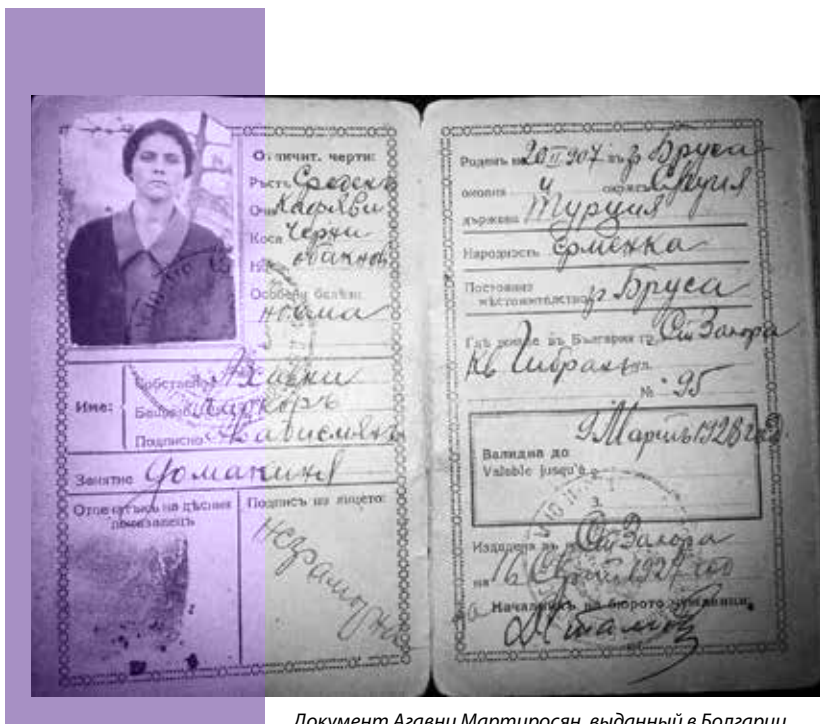 Отличит. черти:
Ръстъ Средень
Очи Кафяви
Коса Черни
Особени белѣзи:
нѣма
Име:
Собствено
Бащино
Подписно
Занятие Домакиня
Отпечатъкъ на дѣсния
показалецъ
Подписъ на лицето:
неграмотна
Роденъ на 20 II 907 въ гр Бруса
околия и окрѫгъ
държава Турция
Народность Ерменка
Постоянно
мѣстожителство гр Бруса
Гдѣ живѣе въ България гр. Ст Загора
Кв ул.
№ 95
9 Мартъ 1928 год.
Валидна до
Valable jusqu'à
2.
3.
Издадена въ гр Ст Загора
на 16 1927 год
Началникъ на бюрото чужденци,
Документ Агавни Мартиросян, выданный в Болгарии